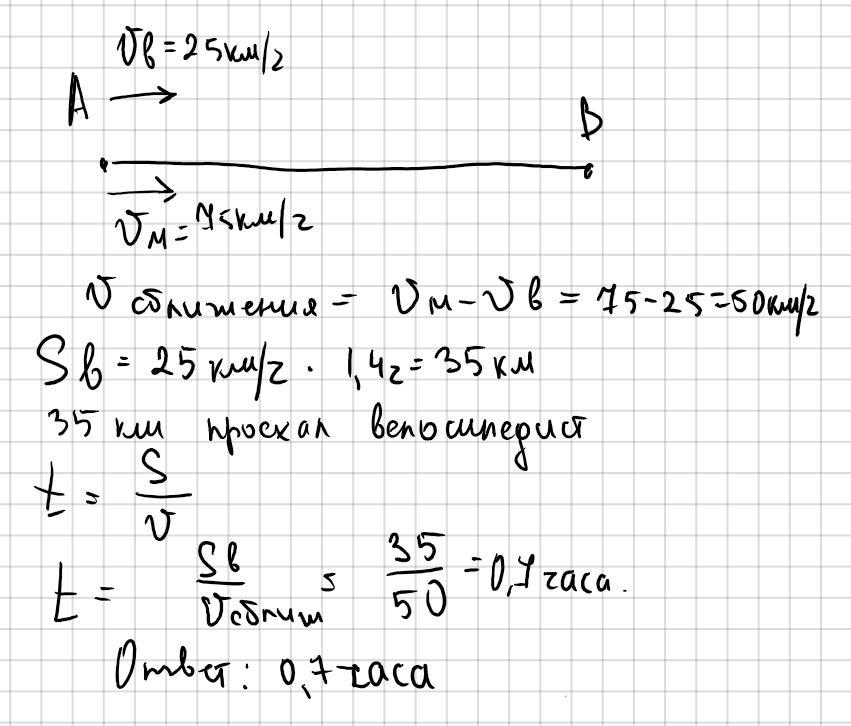 Vв = 25 км/г
A
B
Vм = 75 км/г
V сближения = Vм - Vв = 75 - 25 = 50 км/г
Sв = 25 км/г · 1,4г = 35 км
35 км проехал велосипедист
t = S/V
t = Sв/Vсближ = 35/50 = 0,7 часа.
Ответ: 0,7 часа